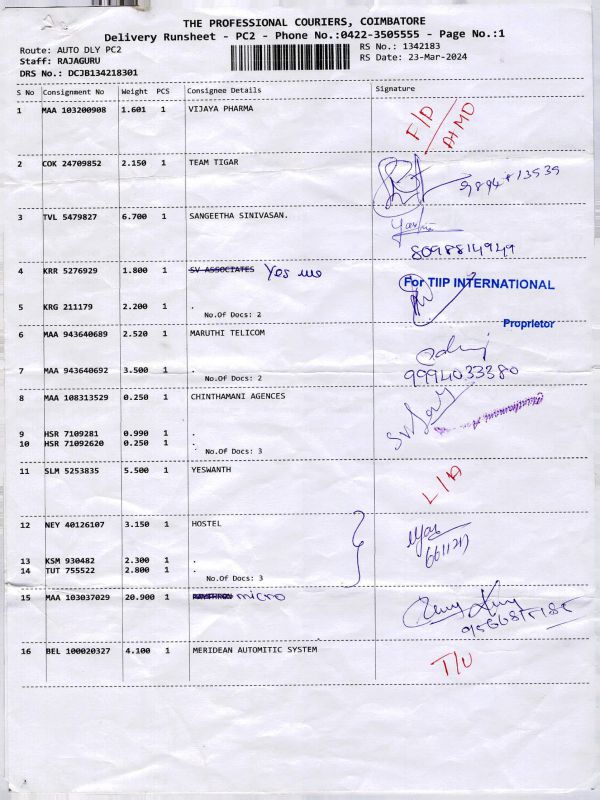 THE PROFESSIONAL COURIERS, COIMBATORE
Delivery Runsheet - PC2 - Phone No.:0422-3505555 - Page No.:1
Route: AUTO DLY PC2 RS No.: 1342183
Staff: RAJAGURU RS Date: 23-Mar-2024
DRS No.: DCJB134218301
S No Consignment No Weight PCS Consignee Details Signature
1 MAA 103200908 1.601 1 VIJAYA PHARMA F/D
2 COK 24709852 2.150 1 TEAM TIGAR
3 TVL 5479827 6.700 1 SANGEETHA SINIVASAN.
8098814949
4 KRR 5276929 1.800 1 SV ASSOCIATES Yes me For TIIP INTERNATIONAL
5 KRG 211179 2.200 1 .
No.Of Docs: 2 Proprietor
6 MAA 943640689 2.520 1 MARUTHI TELICOM
7 MAA 943640692 3.500 1 . 9994033380
No.Of Docs: 2
8 MAA 108313529 0.250 1 CHINTHAMANI AGENCES
9 HSR 7109281 0.990 1 .
10 HSR 71092620 0.250 1 .
No.Of Docs: 3
11 SLM 5253835 5.500 1 YESWANTH L/A
12 NEY 40126107 3.150 1 HOSTEL
13 KSM 930482 2.300 1 .
14 TUT 755522 2.800 1 .
No.Of Docs: 3
15 MAA 103037029 20.900 1 micro
16 BEL 100020327 4.100 1 MERIDEAN AUTOMITIC SYSTEM T/U